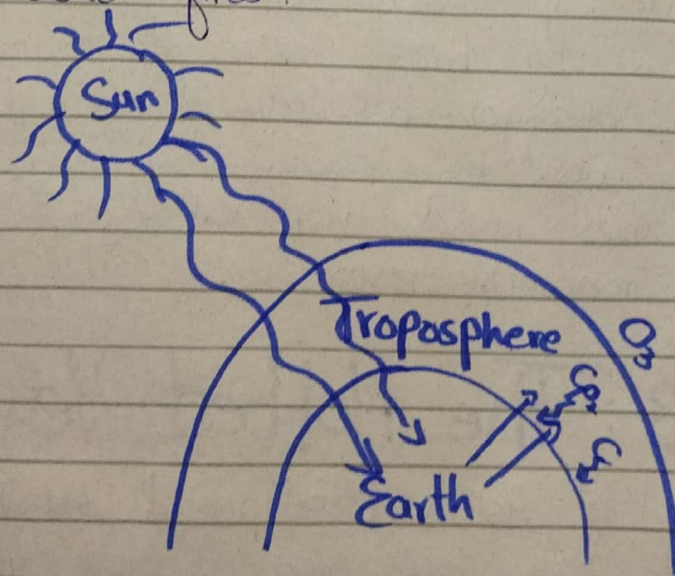 Sun
Troposphere
O3
CO2
Earth